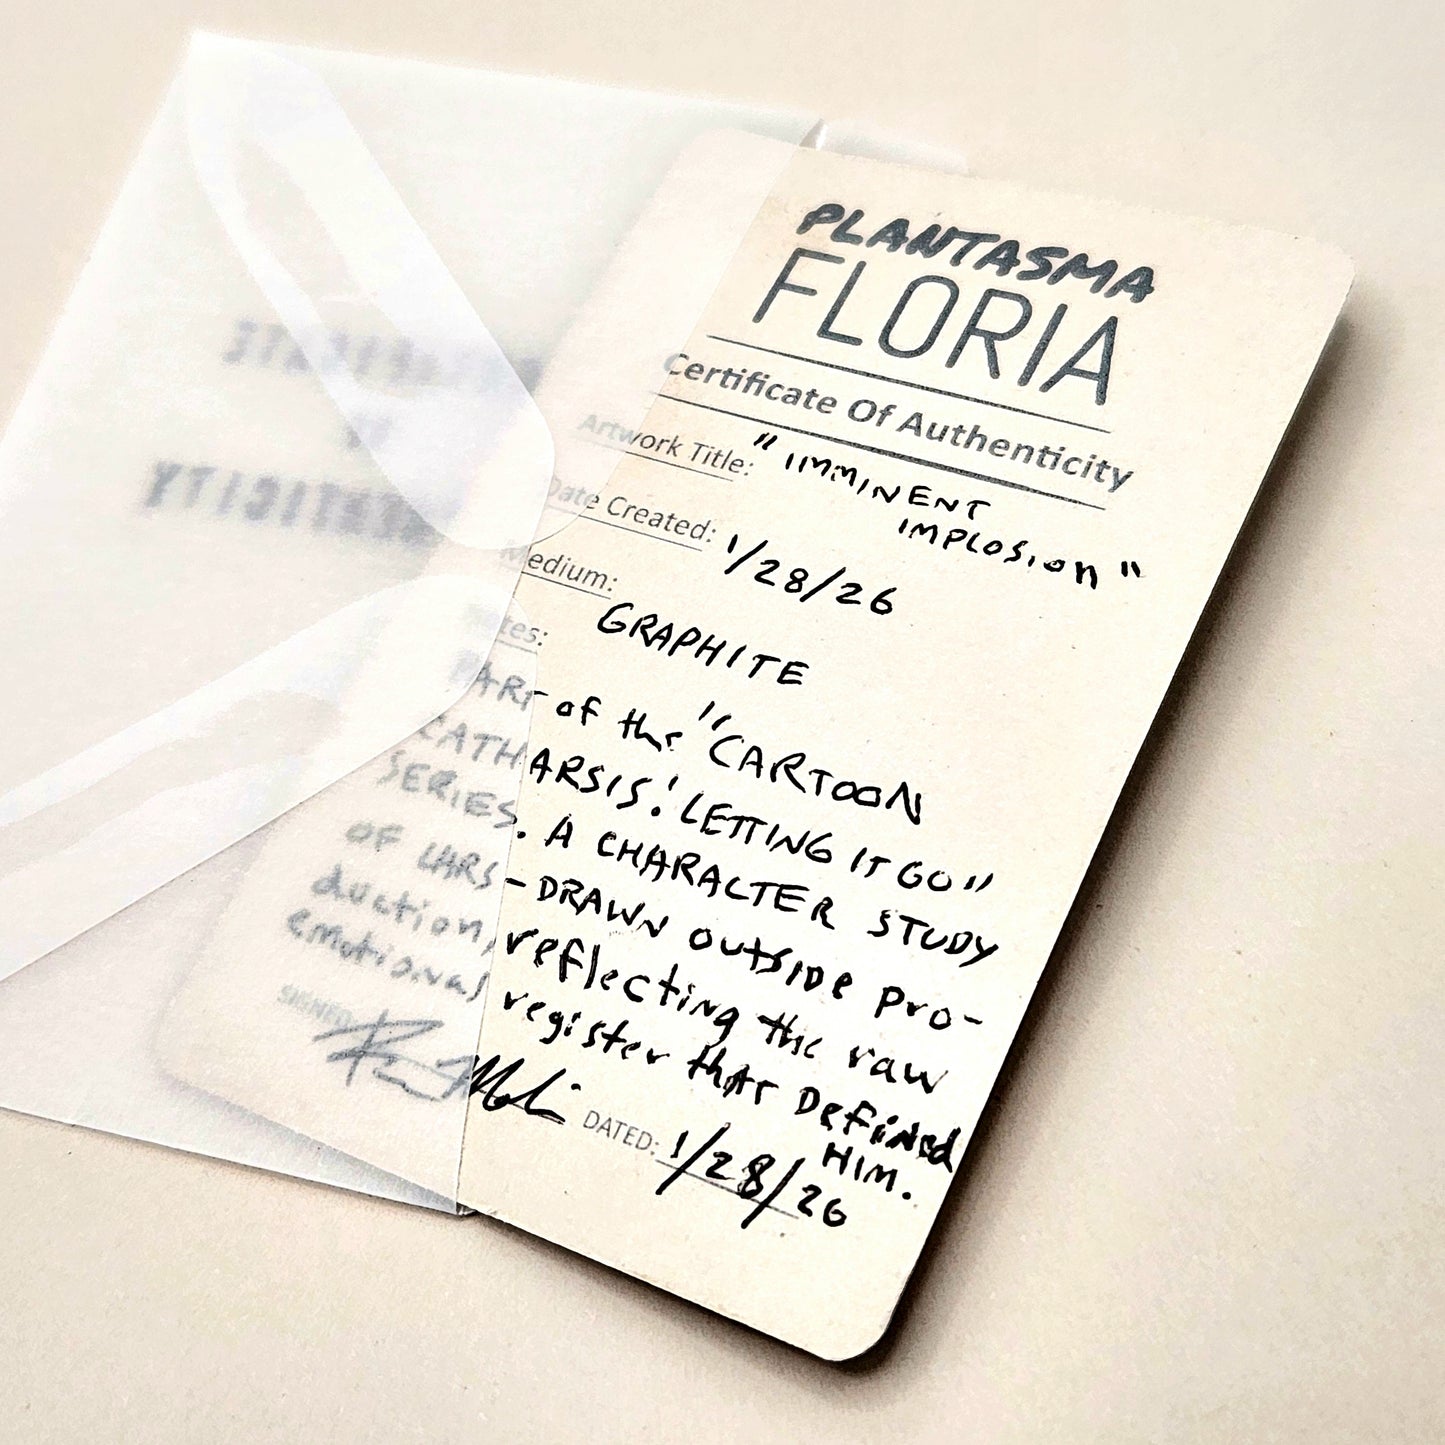 PLANTASMA
FLORIA
Certificate Of Authenticity
Artwork Title: "IMMINENT
IMPLOSION"
Date Created: 1/28/26
Medium:
GRAPHITE
Notes:
PART of the "CARTOON
CATHARSIS: LETTING IT GO"
SERIES. A CHARACTER STUDY
OF LARS - DRAWN OUTSIDE Pro-
duction, reflecting the raw
emotional register that DeFined
HIM.
SIGNED:
DATED: 1/28/26